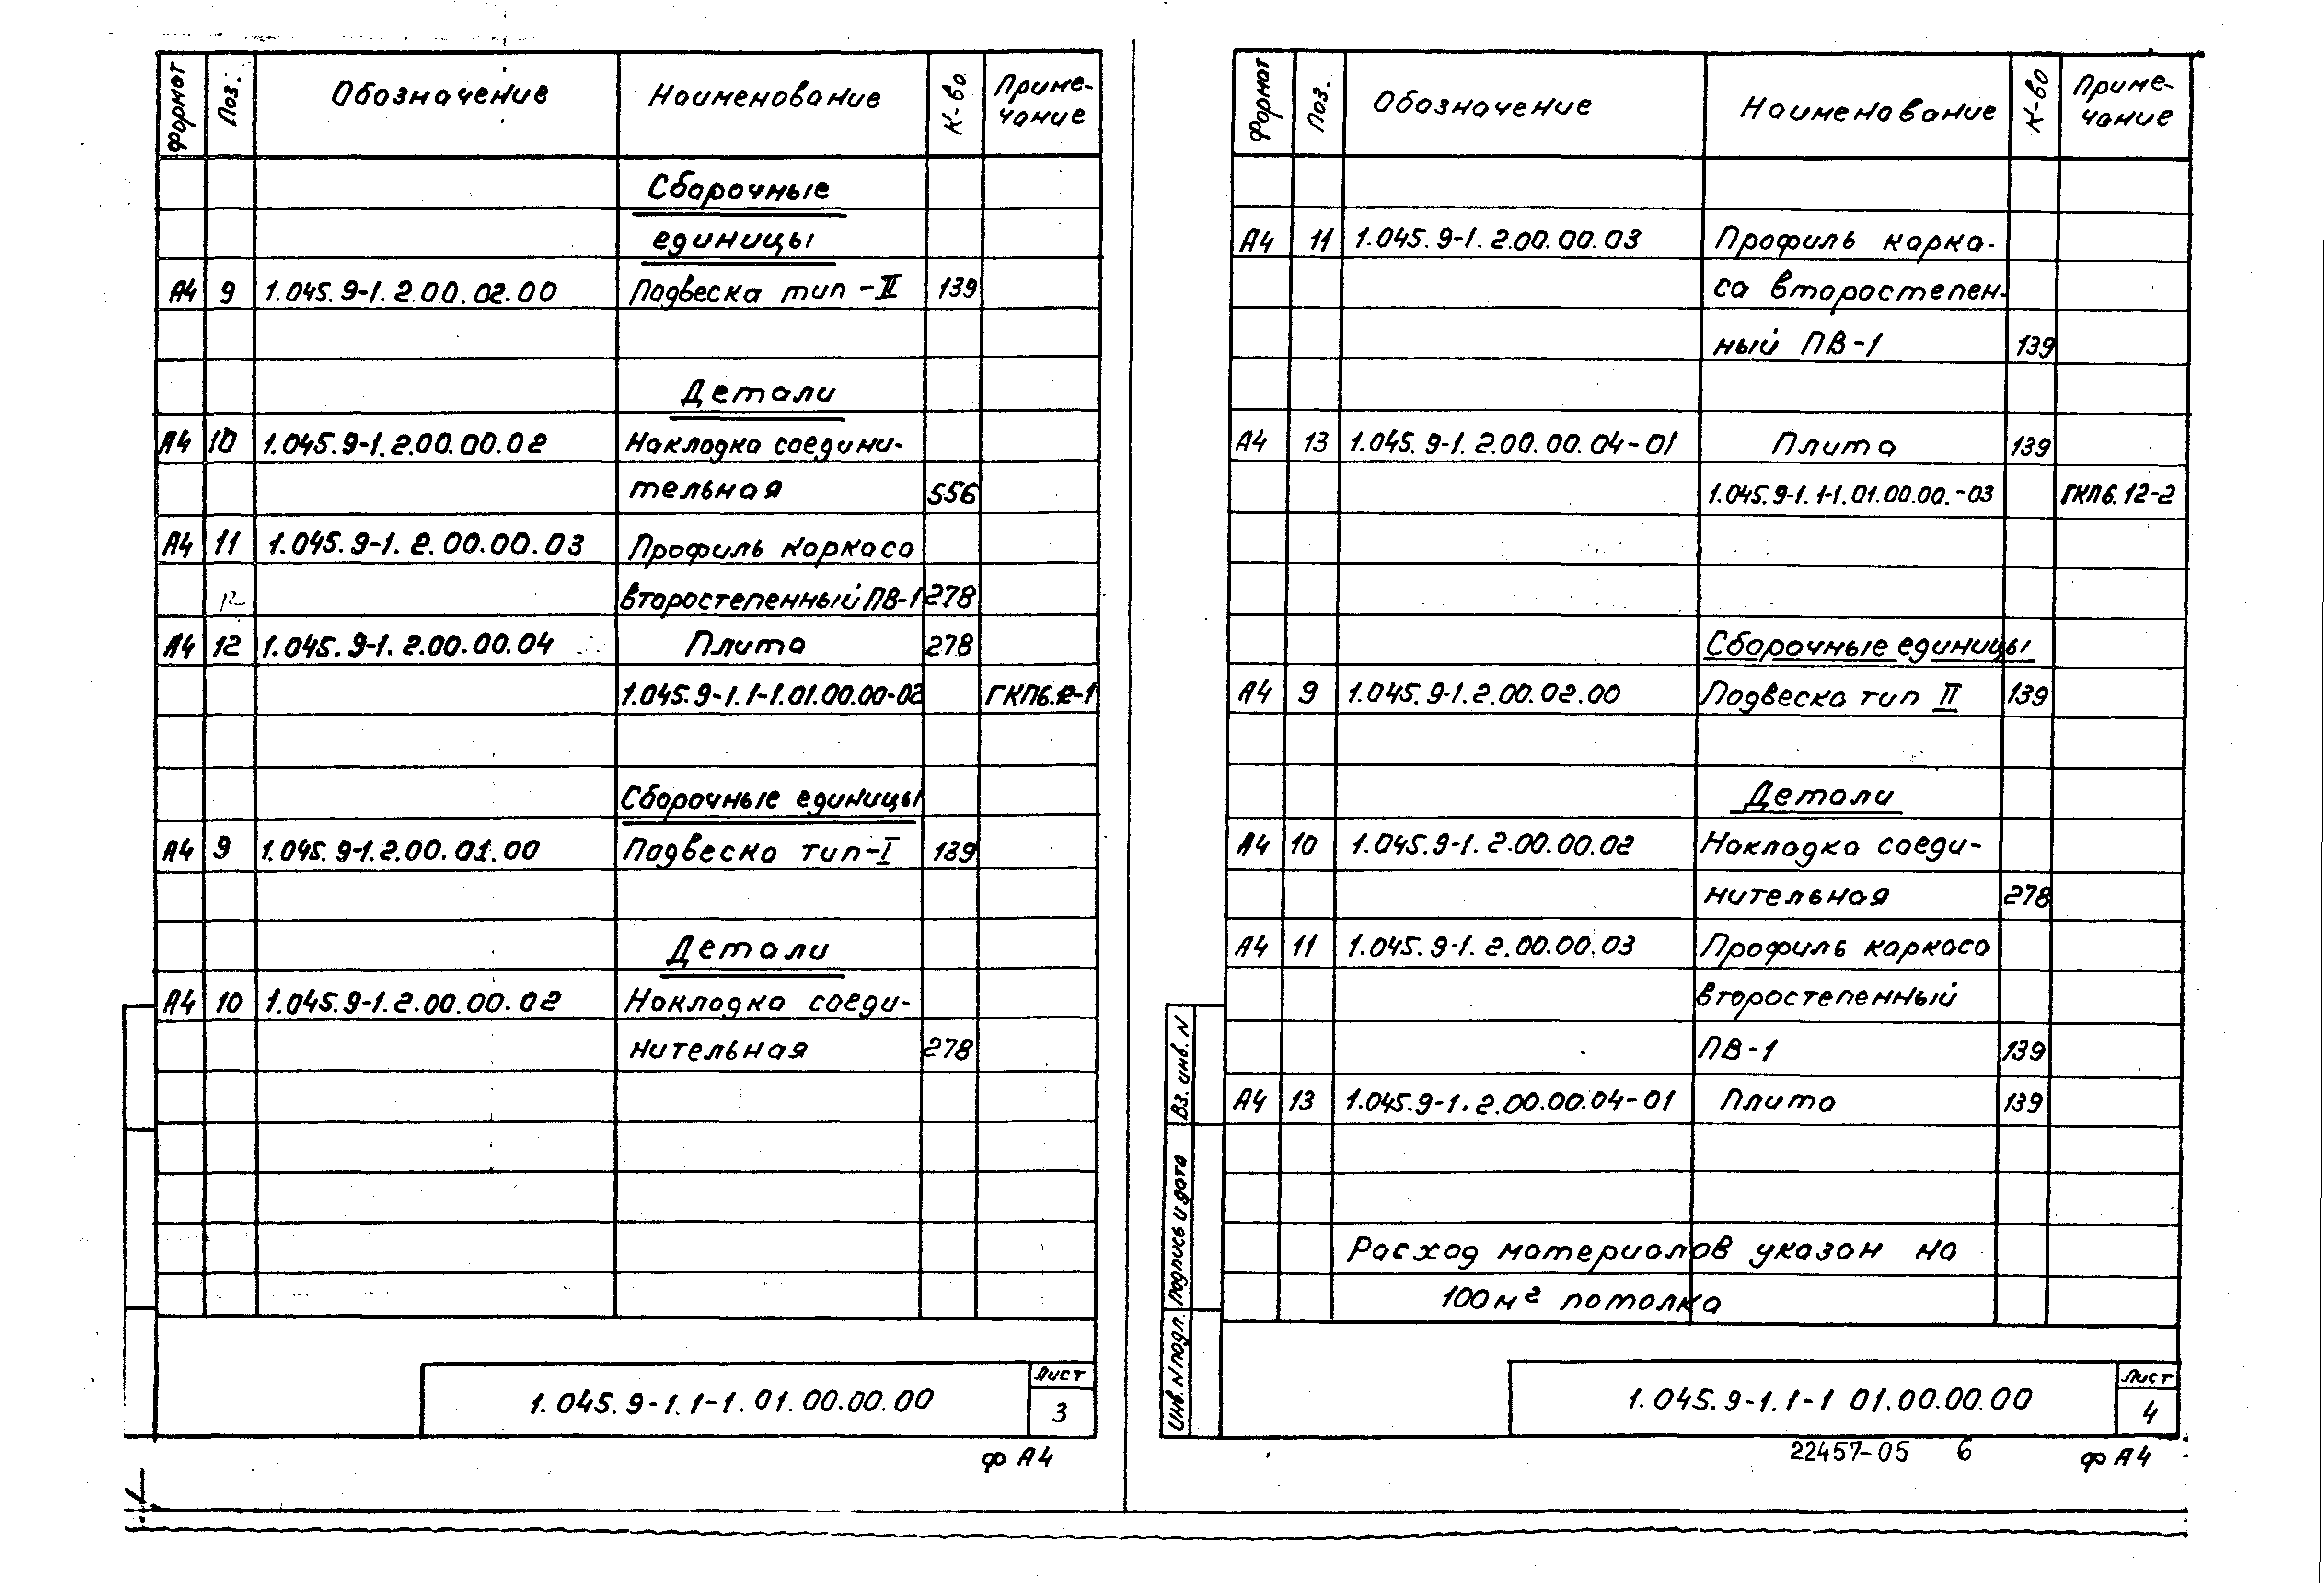 Формат Поз. Обозначение Наименование К-во Приме-
чание
Сборочные
единицы
А4 9 1.045.9-1.2.00.02.00 Подвеска тип-II 139
Детали
А4 10 1.045.9-1.2.00.00.02 Накладка соедини-
тельная 556
А4 11 1.045.9-1.2.00.00.03 Профиль каркаса
второстепенный ПВ-1 278
А4 12 1.045.9-1.2.00.00.04 Плита 278
1.045.9-1.1-1.01.00.00-02
Сборочные единицы
А4 9 1.045.9-1.2.00.01.00 Подвеска тип-I 139
Детали
А4 10 1.045.9-1.2.00.00.02 Накладка соеди-
нительная 278
1.045.9-1.1-1.01.00.00.00 Лист
3
ф А4
Формат Поз. Обозначение Наименование К-во Приме-
чание
А4 11 1.045.9-1.2.00.00.03 Профиль карка-
са второстепен-
ный ПВ-1 139
А4 13 1.045.9-1.2.00.00.04-01 Плита 139
1.045.9-1.1-1.01.00.00.-03 ГКП6.12-2
Сборочные единицы
А4 9 1.045.9-1.2.00.02.00 Подвеска тип II 139
Детали
А4 10 1.045.9-1.2.00.00.02 Накладка соеди-
нительная 278
А4 11 1.045.9-1.2.00.00.03 Профиль каркаса
второстепенный
ПВ-1 139
А4 13 1.045.9-1.2.00.00.04-01 Плита 139
Расход материалов указан на
100м² потолка
Вз. инв. N
Подпись и дата
Инв. N подл.
1.045.9-1.1-1 01.00.00.00 Лист
4
22457-05 6 ф А4